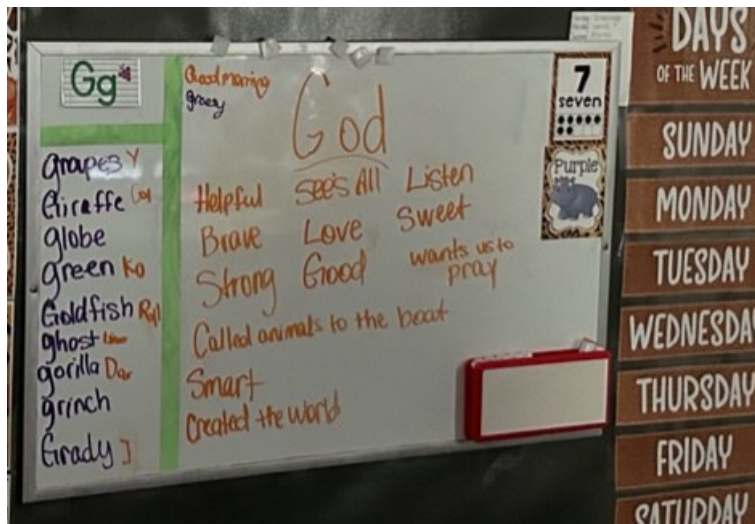 Gg
grapes Y
Giraffe
globe
green Ko
Goldfish
ghost
gorilla Da
grinch
Grady J
Good morning
God
Helpful See's All Listen
Brave Love Sweet
Strong Good wants us to
pray
Called animals to the boat
Smart
Created the world
7
seven
Purple
DAYS
OF THE WEEK
SUNDAY
MONDAY
TUESDAY
WEDNESDA
THURSDAY
FRIDAY
SATURDAY